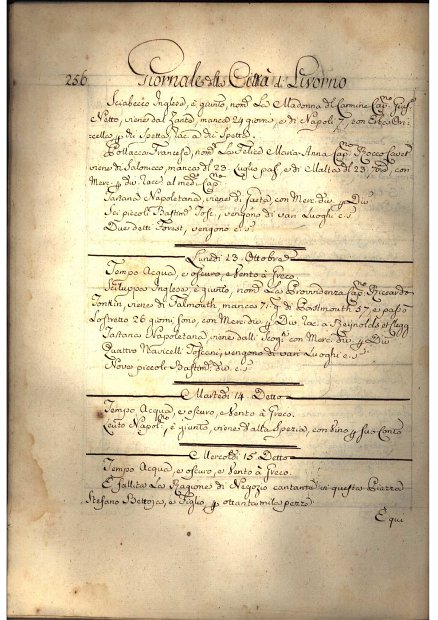 256
Giornale della Città di Livorno
Sciabecco Inglese, è giunto, nom: La Madonna del Carmine Cap:no
Netto, viene dal Zante manca 24 giorni, e di Napoli 7, con
di Spetta, rac. a di Spetta.
Pollacca Francese, nom:ta La Felice Maria-Anna Cap:no Rocco
viene di Salonicco, manca dl 23 Luglio pas:, e di Malta dl 23, con
Merc: p div: rac: al med: Cap:no
Tartana Napoletana, viene di Gaeta, con Merc: div: p Div:
Sei piccoli Bastim: Tosc:, vengono di vari Luoghi c. s.
Due detti Forest:, vengono c. s.
Lunedì 13. Ottobre
Tempo Acqua, e oscuro, e Vento à Greco.
Sviluppo Inglese, è giunto, nom: La Provvidenza Cap:no Riccardo
Tonkin, viene di Falmouth, manca 71 g: di Portsmouth 57, e passò
Lo Stretto 26 giorni sono, con Merc: div: p Div: rac: a Reynolds et
Tartana Napoletana, viene dalli con Merc: div: p Div:
Quattro Navicelli Toscani, vengono di vari Luoghi c. s.
Nove piccoli Bastim: div: c. s.
Martedì 14. Detto
Tempo Acqua, e oscuro, e Vento à Greco.
Leuto Napol:no, è giunto, viene d'alla Spezia, con Vino p suo Conto
Mercoldì 15. Detto
Tempo Acqua, e oscuro, e Vento à Greco.
È fallita La Ragione di Negozio cantante in questa Piazza
Stefano Bettoja, e Figlio p ottanta mila pezze
E qui